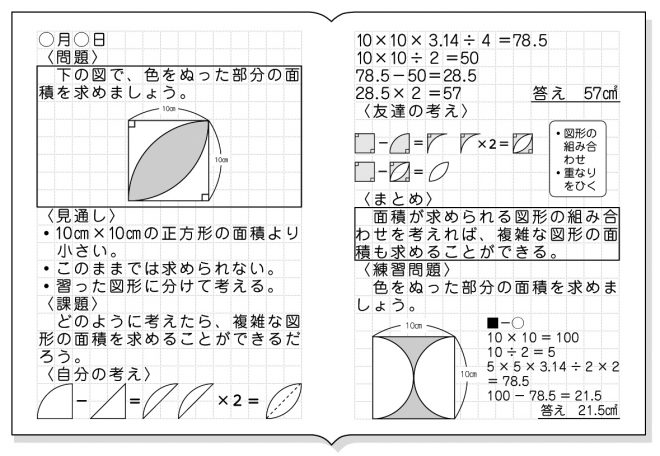 ○月○日
〈問題〉
下の図で、色をぬった部分の面
積を求めましょう。
10㎝
10㎝
〈見通し〉
・10㎝×10㎝の正方形の面積より
小さい。
・このままでは求められない。
・習った図形に分けて考える。
〈課題〉
どのように考えたら、複雑な図
形の面積を求めることができるだ
ろう。
〈自分の考え〉
− = ×2 =
10×10×3.14÷4=78.5
10×10÷2=50
78.5−50=28.5
28.5×2=57
答え 57㎠
〈友達の考え〉
− = ×2=
− =
・図形の
組み合
わせ
・重なり
をひく
〈まとめ〉
面積が求められる図形の組み合
わせを考えれば、複雑な図形の面
積も求めることができる。
〈練習問題〉
色をぬった部分の面積を求めま
しょう。
10㎝
10㎝
■−○
10×10=100
10÷2=5
5×5×3.14÷2×2
=78.5
100−78.5=21.5
答え 21.5㎠